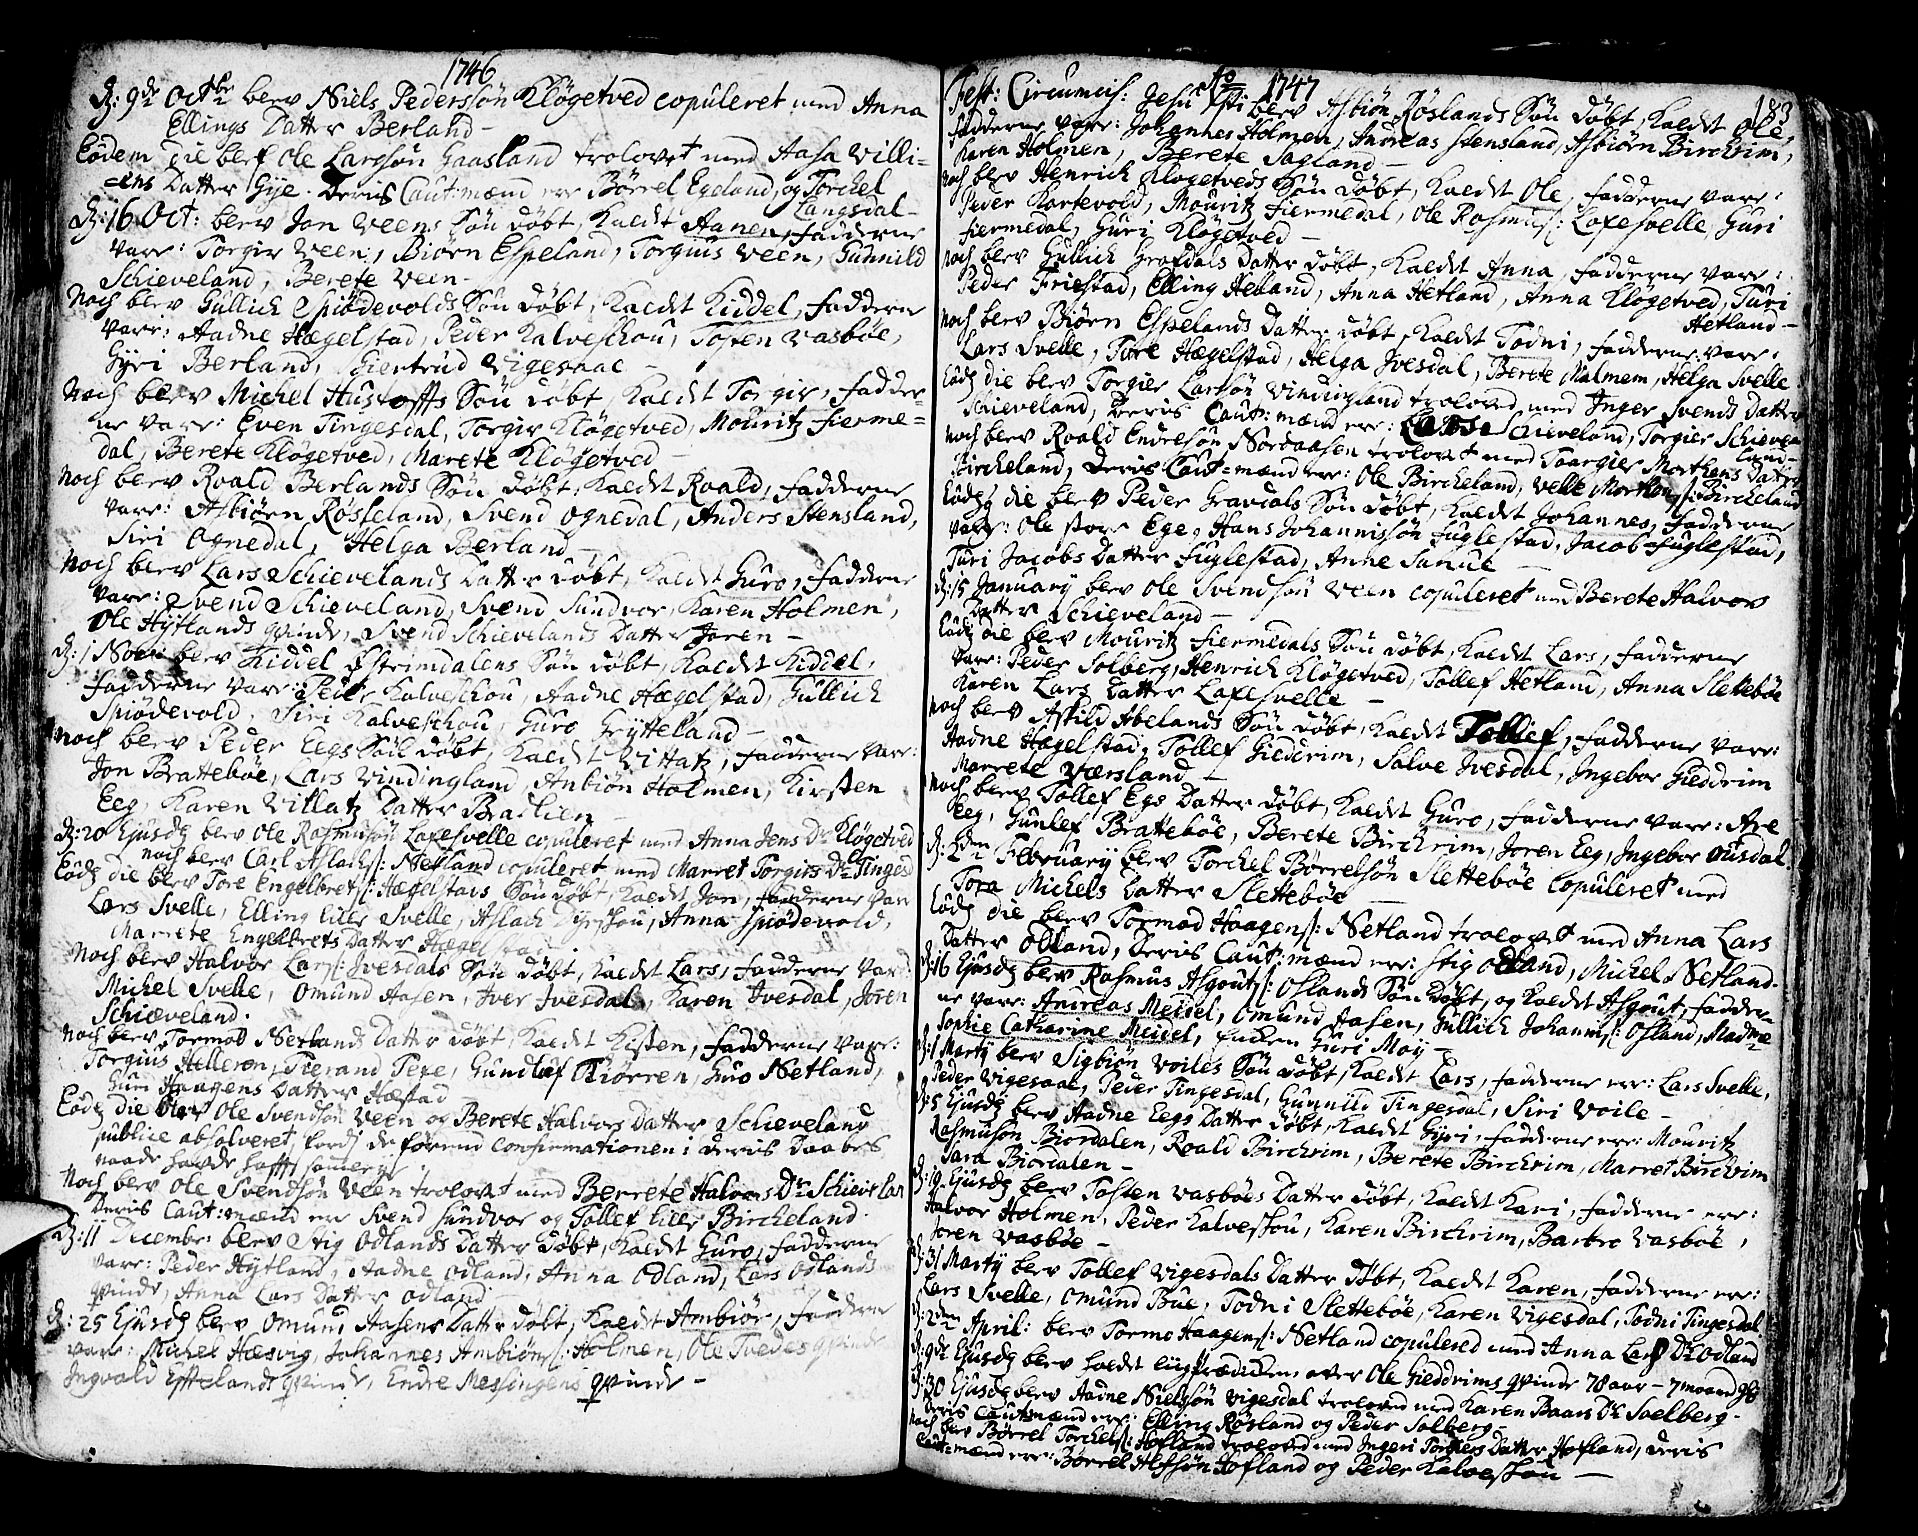 1746
D: 9de Octbr blev Niels Pedersøn Kløgetved copuleret med Anna
Ellings Datter Berland –
Eodem die blef Ole Larsøn Gaasland trolovet med Aasa Villi=
=ens Datter Gye. Deris Caut:mænd ere Børrel Egeland, og Torchel
Langsdal –
D: 16 Oct: blev Jon Veens Søn døbt, kaldt Aanen, Fadderne
vare: Torgir Veen, Biørn Espeland, Torgius Veen, Gunnild
Schieveland, Berete Veen –
Noch blev Gullich Spiødevolds Søn døbt, kaldt Kiddel, Fadderne
vare: Aadne Hægelstad, Peder Kalveschou, Tosten Vasbøe,
Gyri Berland, Giertrud Vigesaae –
Noch blev Michel Hustoffts Søn døbt, kaldt Torgir, Fadder=
ne vare: Even Tingesdal, Torgir Kløgetved, Mouritz Fierme=
dal, Berete Kløgetved, Marete Kløgetved –
Noch blev Roald Berlands Søn døbt, kaldt Roald, Fadderne
vare: Asbiørn Røsseland, Svend Ognedal, Anders Stensland,
Siri Ognedal, Helga Berland –
Noch blev Lars Schievelands Datter døbt, kaldt Guro, Fadderne
vare: Svend Schieveland, Svend Sundvor, Karen Holmen,
Ole Hytlands qvinde, Svend Schievelands Datter Joren –
D: 1 Novr blev Kiddel Østrimdalens Søn døbt, kaldt Kiddel,
Fadderne vare: Peder Kalveschou, Aadne Hægelstad, Gullich
Spiødevold, Siri Kalveschou, Guro Grytteland –
Noch blev Peder Eegs Søn døbt, kaldt Vittatz, Fadderne vare:
Jon Brattebøe, Lars Vindingland, Anbiøn Holmen, Kirsten
Eeg, Karen Villatz Datter Bradlien –
D: 20 Ejusd blev Ole Rasmusøn Laxesvelle copuleret med Anna Jens Dr Kløgetved
Noch blev Carl Aslachs: Netland copuleret med Marret Torgirs Dr Tingesd
Eod die blev Tore Engelbrets: Hægelstads Søn døbt, kaldt Jon, Fadderne var
Lars Svelle, Elling lille Svelle, Aslach Dyrschou, Anna Spiødevold,
Marrete Engelbrets Datter Hægelstad
Noch blev Halvor Lars: Ivesdals Søn døbt, kaldt Lars, Fadderne var:
Michel Svelle, Omund Aasen, Iver Ivesdal, Karen Ivesdal, Joren
Schiæveland.
Noch blev Tormod Netlands Datter døbt, kaldt Kisten, Fadderne vare:
Torgius Helleren, Tierand Pexe, Gundlef Kiørren, Guro Netland,
Guri Haagens Datter Hæstad
Eod die blev Ole Svendsøn Veen og Berete Halvors Datter Schieveland
publice absolveret, fordi de førend confirmationen i deris Daabes
naade havde hafft samleye
Noch blev Ole Svendsøn Veen trolovet med Berrete Halvors Dr Schievelan
Deris Caut:mænd ere Svend Sundvor og Tollef lille Bircheland.
D: 11 December blev Stig Odlands Datter døbt, kaldt Guro, Fadderne
vare: Peder Hytland, Aadne Odland, Anna Odland, Lars Odlands
qvinde, Anna Lars Datter Odland
D: 25 Ejusd blev Omund Aasens Datter døbt, kaldt Ambiør, Faddrne
vare: Michel Hæsvig, Johannes Ambiørns: Holmen, Ole Tvedes qvinde
Ingvald Espelands qvinde, Endre Messingens qvinde –
Ao 1747
183
Fest: Circumcis: Jesu Xsti blev Asbiøn Røslands Søn døbt, kaldt Ole,
Fadderne vare: Johannes Holmen, Andreas Stensland, Asbiørn Birchrim,
Karen Holmen, Berete Sagland –
Noch blev Henrich Kløgetveds Søn døbt, kaldt Ole, Fadderne vare:
Peder Kartevold, Mouritz Fiermedal, Ole Rasmus: Laxesvelle, Guri
Fiermedal, Guri Kløgetved –
Noch blev Gullich Grafdals Datter døbt, kaldt Anna, Fadderne vare:
Peder Friestad, Elling Hetland, Anna Hetland, Anna Kløgetved, Turi
Hetland –
Noch blev Biørn Espelands Datter døbt, kaldt Todni, Fadderne vare:
Lars Svelle, Tore Hægelstad, Helga Ivesdal, Berete Malmem, Helga Svelle
Eod die blev Torgier Larsøn Vindingland troloved med Inger Svends Datter
Schieveland, Deris Caut:mænd ere: Lars Schieveland, Torgier Schieve=
land –
Noch blev Roald Endresøn Nordaasen trolovet med Taargier Morthens Datter
Bircheland, Deris Caut=mænd ere: Ole Bircheland, Velle Morthens: Bircheland
Eod die blev Peder Gravdals Søn døbt, kaldt Johannes, Fadderne
vare: Ole store Ege, Hans Johannissøn Fuglestad, Jacob Fuglestad,
Turi Jacobs Datter Fuglestad, Anne Sanue –
D: 15 January blev Ole Svendsøn Veen copuleret med Berete Halvors
Datter Schieveland –
Eod die blev Mouritz Fiermedals Søn døbt, kaldt Lars, Fadderne
vare: Peder Solberg, Henrich Kløgetved, Tollef Hetland, Anna Slettebøe
Karen Lars Datter Laxesvelle –
Noch blev Askild Abelands Søn døbt, kaldt Tollief, Fadderne vare:
Aadne Hægelstad, Tollef Gieddrim, Salve Ivesdal, Ingebor Gieddrim
Marrete Værsland –
Noch blev Tollef Egs Datter døbt, kaldt Guro, Fadderne vare: Are
Eeg, Gunlef Brattebøe, Berete Birchrim, Joren Eeg, Ingebor Ousdal.
D: 2den February blev Torchel Børrelsøn Slettebøe copuleret med
Tora Michels Datter Slettebøe –
Eod die blev Tormod Haagens: Netland trolovet med Anna Lars
Datter Odland, Deris Caut:mænd ere: Stig Odland, Michel Netland.
D: 16 Ejusd blev Rasmus Asgouts: Oslands Søn døbt, og kaldt Asgout, Fadder=
ne vare: Andreas Meidel, Omund Aasen, Gullich Johannis: Osland, Madme
Sophie Catharine Meidel, Enken Guri Moy –
D: 1 Marty blev Sigbiøn Voiles Søn døbt, kaldt Lars, Fadderne ere: Lars Svelle,
Peder Vigesaae, Peder Tingesdal, Gunnild Tingesdal, Siri Voile –
D: 5 Ejusd blev Aadne Eegs Datter døbt, kaldt Gyri, Fadderne ere: Mouritz
Rasmusøn Biordalen, Roald Birchrim, Berete Birchrim, Marret Birchrim
Sara Biordalen –
D: 19 Ejusd blev Tosten Vasbøes Datter døbt, kaldt Kari, Fadderne ere:
Halvor Holmen, Peder Kalveschou, Karen Birchrim, Barbro Vasbøe,
Joren Vasbøe –
D: 31 Marty blev Tollef Vigesdals Datter døbt, kaldt Karen, Fadderne ere:
Lars Svelle, Omund Bue, Todni Slettebøe, Karen Vigesdal, Todni Tingesdal
D: 2den April: blev Tormo Haagens: Netland copulered med Anna Lars Dr Odland
D: 9de Ejusd blev holdt liigprædicken over Ole Gieddrims qvinde 78 aar – 7 maaned gl:
D: 30 Ejusd blev Aadne Nielssøn Vigesdal troloved med Karen Baars Dr Svelberg –
Deris Cautmænd ere: Elling Røsland og Peder Solberg –
Noch blev Børrel Torchels: Hofland trolovet med Ingeri Torkiers Datter Hofland, Deris
Caut=mænd ere: Børrel Olefsøn Hofland og Peder Kalveschou –